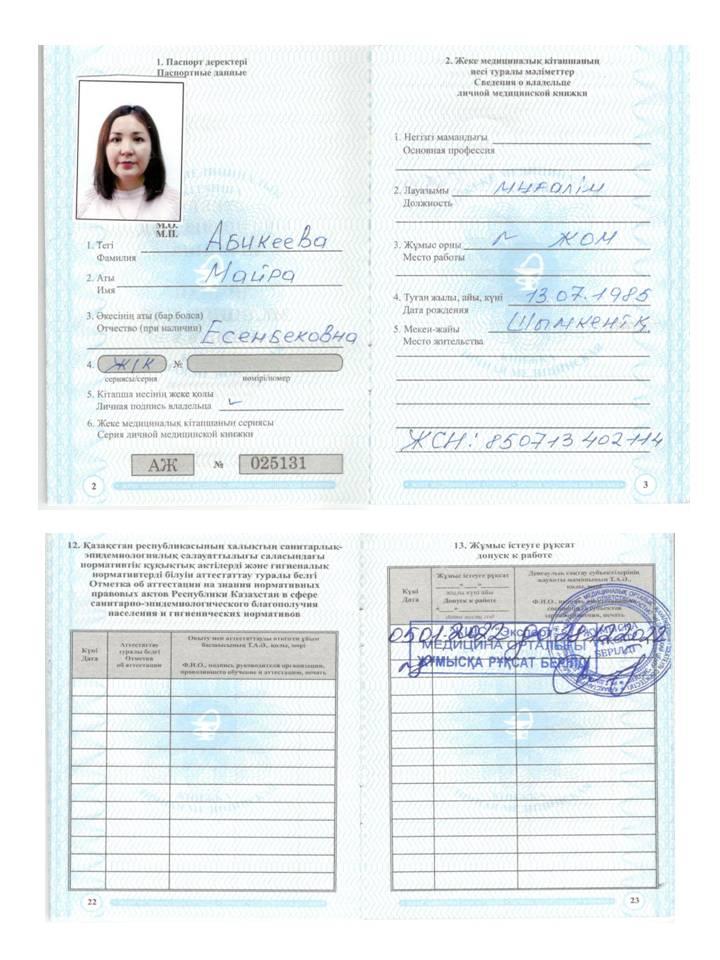 1. Паспорт деректері
Паспортные данные
М.О.
М.П.
1. Тегі Абикеева
Фамилия
2. Аты Майра
Имя
3. Әкесінің аты (бар болса)
Отчество (при наличии) Есенбековна
4. ЖІК №
сериясы/серия нөмірі/номер
5. Кітапша иесінің жеке қолы
Личная подпись владельца
6. Жеке медициналық кітапшаның сериясы
Серия личной медицинской книжки
АЖ № 025131
2
2. Жеке медициналық кітапшаның
иесі туралы мәліметтер
Сведения о владельце
личной медицинской книжки
1. Негізгі мамандығы
Основная профессия
2. Лауазымы мұғалім
Должность
3. Жұмыс орны ЖОМ
Место работы
4. Туған жылы, айы, күні 13.07.1985
Дата рождения
5. Мекен-жайы Шымкент қ
Место жительства
ЖСН: 850713402114
3
12. Қазақстан республикасының халықтың санитарлық-
эпидемиологиялық салауаттылығы саласындағы
нормативтік құқықтық актілерді және гигиеналық
нормативтерді білуін аттестаттау туралы белгі
Отметка об аттестации на знания нормативных
правовых актов Республики Казахстан в сфере
санитарно-эпидемиологического благополучия
населения и гигиенических нормативов
Күні
Дата
Аттестаттау
туралы белгі
Отметка
об аттестации
Оқыту мен аттестаттауды өткізген ұйым
басшысының Т.А.Ә., қолы, мөрі
Ф.И.О., подпись руководителя организации,
проводившего обучение и аттестацию, печать
22
13. Жұмыс істеуге рұқсат
допуск к работе
Күні
Дата
Жұмыс істеуге рұқсат
жылы күні айы
Допуск к работе
Денсаулық сақтау субъектілерінің
жауапты маманының Т.А.Ә.,
қолы, мөрі
05.01.2022
МЕДИЦИНА ОРТАЛЫҒЫ
ЖҰМЫСҚА РҰҚСАТ БЕРІЛДІ
23